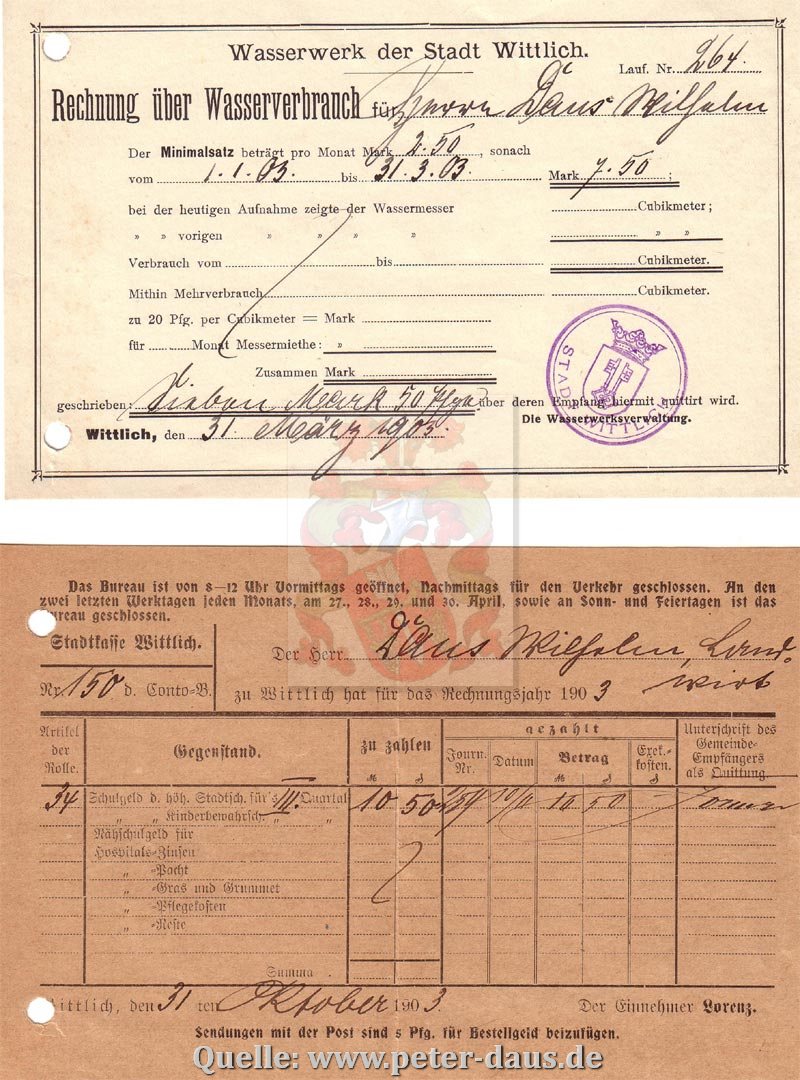 Wasserwerk der Stadt Wittlich.
Lauf. Nr. 264.
Rechnung über Wasserverbrauch für Herrn Daus Wilhelm
Der Minimalsatz beträgt pro Monat Mark 2.50, sonach
vom 1.1.03. bis 31.3.03. Mark 7.50;
bei der heutigen Aufnahme zeigte der Wassermesser Cubikmeter;
„ „ vorigen „ „ „ „ „ „
Verbrauch vom bis Cubikmeter.
Mithin Mehrverbrauch Cubikmeter.
zu 20 Pfg. per Cubikmeter = Mark
für Monat Messermiethe: „
Zusammen Mark
geschrieben: Sieben Mark 50 Pfge. über deren Empfang hiermit quittirt wird.
Wittlich, den 31 März 1903. Die Wasserwerksverwaltung.
STADT WITTLICH
Das Bureau ist von 8—12 Uhr Vormittags geöffnet, Nachmittags für den Verkehr geschlossen. An den
zwei letzten Werktagen jeden Monats, am 27., 28., 29. und 30. April, sowie an Sonn- und Feiertagen ist das
Bureau geschlossen.
Stadtkasse Wittlich.
Der Herr Daus Wilhelm, Land-
wirt
Nr. 150 d. Conto-B. zu Wittlich hat für das Rechnungsjahr 1903
Artikel der Rolle. Gegenstand. zu zahlen M ₰ gezahlt Journ. Nr. Datum Betrag M ₰ Exek.-kosten. Unterschrift des Gemeinde-Empfängers als Quittung.
34 Schulgeld d. höh. Stadtsch. für's III. Quartal 10 50 10 50
„ „ Kinderbewahrsch. „ „
Nähschulgeld für
Hospitals-Zinsen
„ -Pacht
„ -Gras und Grummet
„ -Pflegekosten
„ -Reste
Summa
Wittlich, den 31 ten Oktober 1903. Der Einnehmer Lorenz.
Sendungen mit der Post sind 5 Pfg. für Bestellgeld beizufügen.
Quelle: www.peter-daus.de